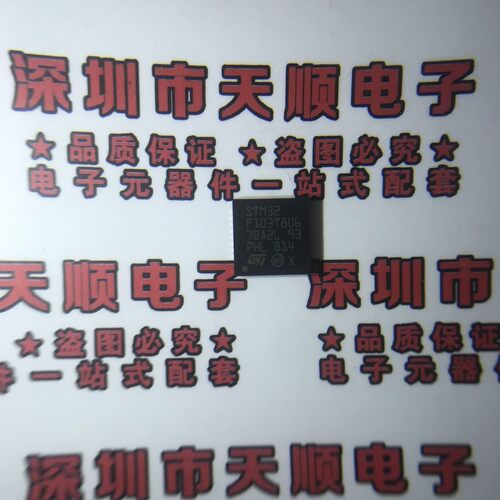 深圳市天顺电子
★品质保证 ★盗图必究★
电子元器件一站式配套
STM32
F103T8U6
7BA2L 93
PHL 814
ST e3 X
天顺电子 深圳市天
★盗图必究★ ★品质保证
件一站式配套 电子元器件
深圳市天顺电子